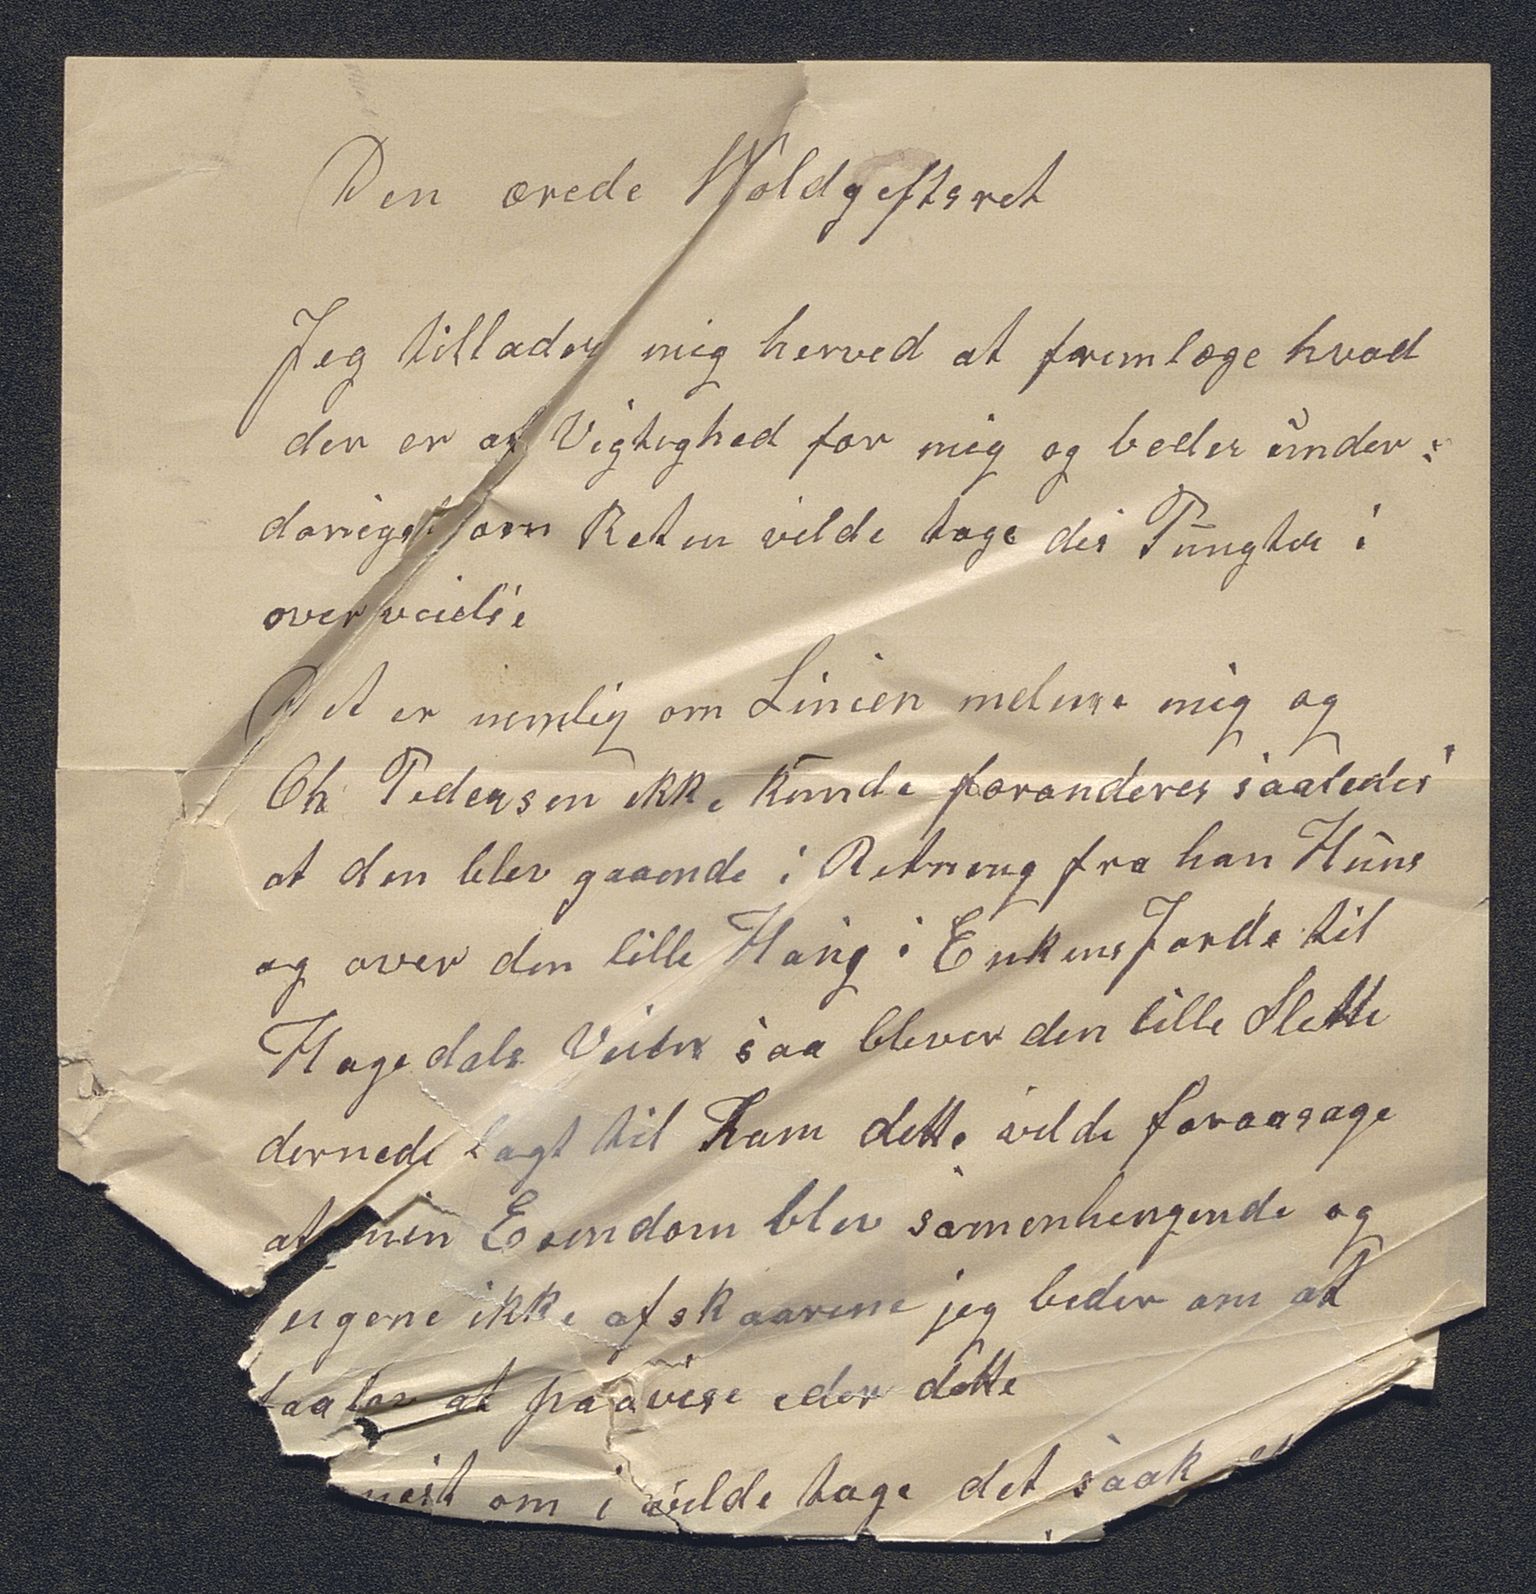 Den ærede Woldgeftsret
Jeg tillader mig herved at fremlæge hvad
der er af Vigtighed for mig og beder under=
danigst om Reten vilde tage dis Pungter i
overveidse
Det er nemlig om Linien melem mig og
Ch Pedersen ikke kunde foranderes saaledes
at den blev gaaende i Retning fra han Huus
og over den lille Haug i Enkens Jorde til
Hagedals Veien saa blever den lille Slette
dernede lagt til ham dette vilde foraasage
at min Eiendom blev samenhengende og
eigene ikke afskaarene jeg beder om at
at paavise eder dette
om i vilde tage det saak